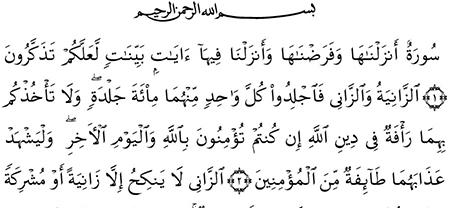 بسم الله الرحمن الرحيم
سُورَةٌ أَنزَلْنَـٰهَا وَفَرَضْنَـٰهَا وَأَنزَلْنَا فِيهَآ ءَايَـٰتٍۭ بَيِّنَـٰتٍ لَّعَلَّكُمْ تَذَكَّرُونَ
﴿١﴾ ٱلزَّانِيَةُ وَٱلزَّانِى فَٱجْلِدُوا۟ كُلَّ وَٰحِدٍ مِّنْهُمَا مِا۟ئَةَ جَلْدَةٍ ۖ وَلَا تَأْخُذْكُم
بِهِمَا رَأْفَةٌ فِى دِينِ ٱللَّهِ إِن كُنتُمْ تُؤْمِنُونَ بِٱللَّهِ وَٱلْيَوْمِ ٱلْـَٔاخِرِ ۖ وَلْيَشْهَدْ
عَذَابَهُمَا طَآئِفَةٌ مِّنَ ٱلْمُؤْمِنِينَ ﴿٢﴾ ٱلزَّانِى لَا يَنكِحُ إِلَّا زَانِيَةً أَوْ مُشْرِكَةً